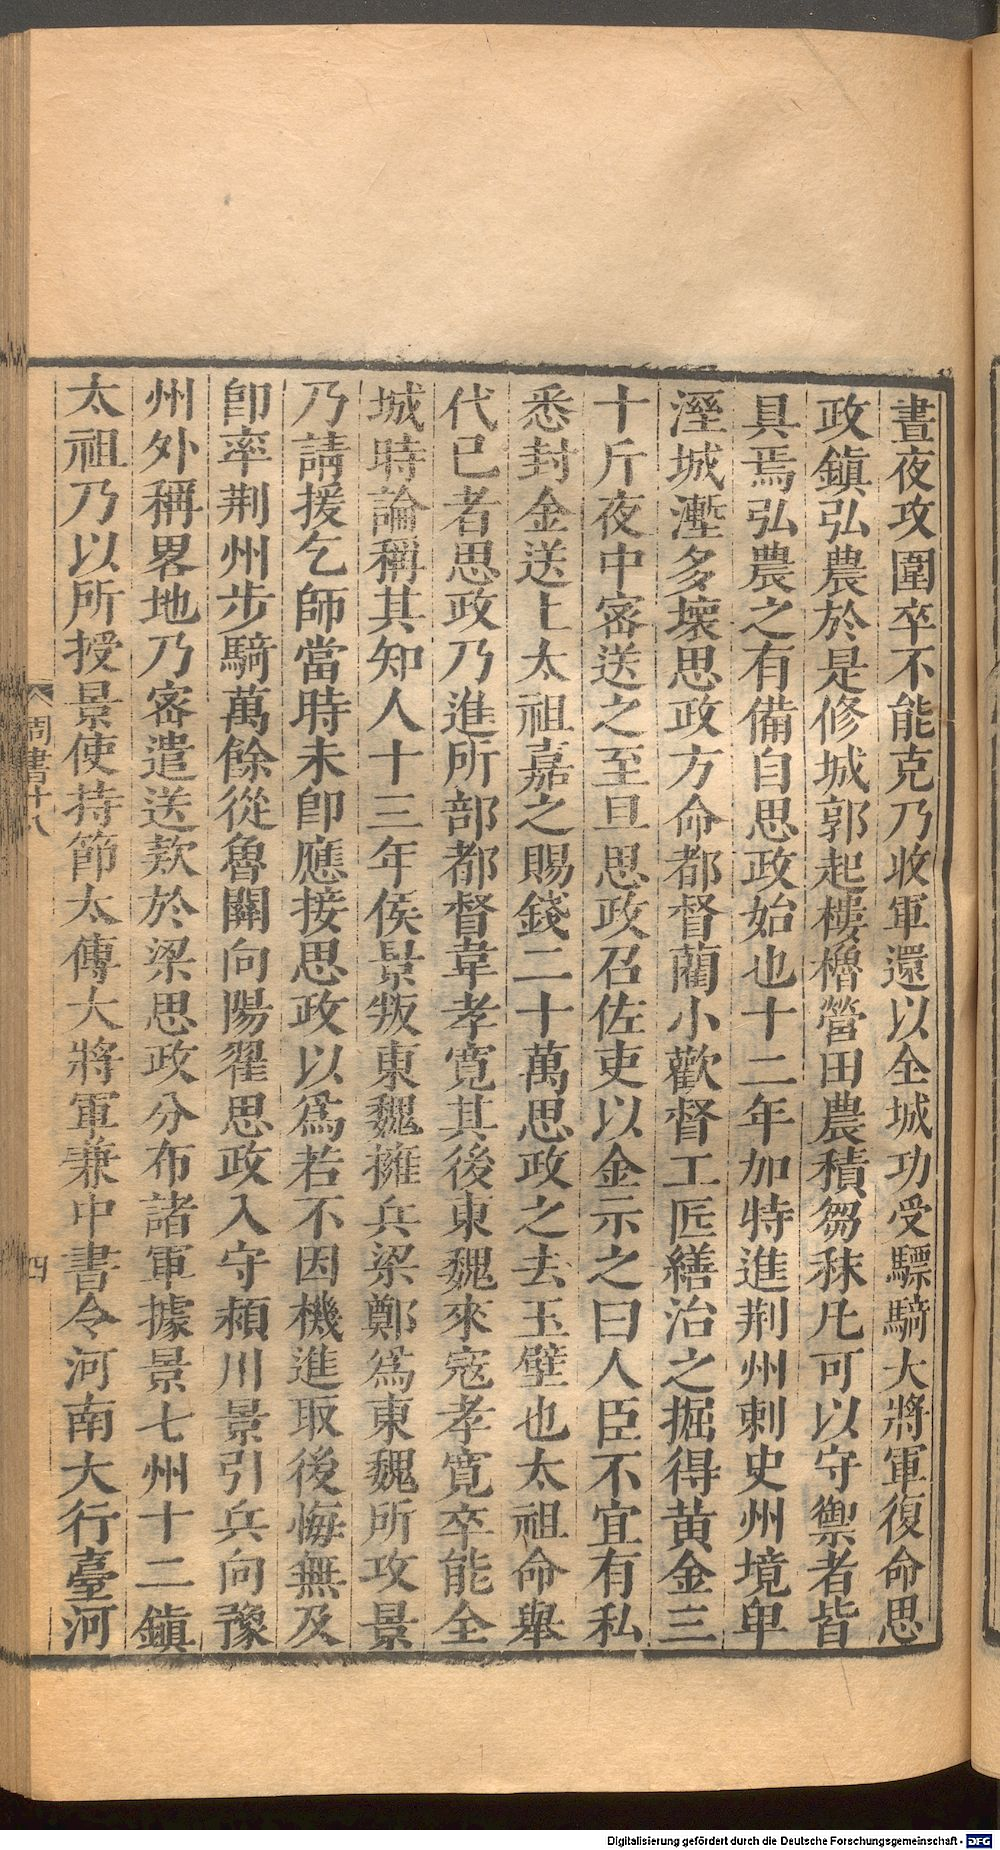 晝夜攻圍卒不能克乃收軍還以全城功受驃騎大將軍復命思
政鎮弘農於是修城郭起樓櫓營田農積芻秣凡可以守禦者皆
具焉弘農之有備自思政始也十二年加特進荆州刺史州境卑
溼城壍多壞思政方命都督藺小歡督工匠繕治之掘得黃金三
十斤夜中密送之至旦思政召佐吏以金示之曰人臣不宜有私
悉封金送上太祖嘉之賜錢二十萬思政之去玉壁也太祖命舉
代已者思政乃進所部都督韋孝寬其後東魏來寇孝寬卒能全
城時論稱其知人十三年侯景叛東魏擁兵梁鄭爲東魏所攻景
乃請援乞師當時未卽應接思政以爲若不因機進取後悔無及
卽率荆州步騎萬餘從魯關向陽翟思政入守潁川景引兵向豫
州外稱畧地乃密遣送款於梁思政分布諸軍據景七州十二鎮
太祖乃以所授景使持節太傅大將軍兼中書令河南大行臺河
周書十八
四
Digitalisierung gefördert durch die Deutsche Forschungsgemeinschaft - DFG